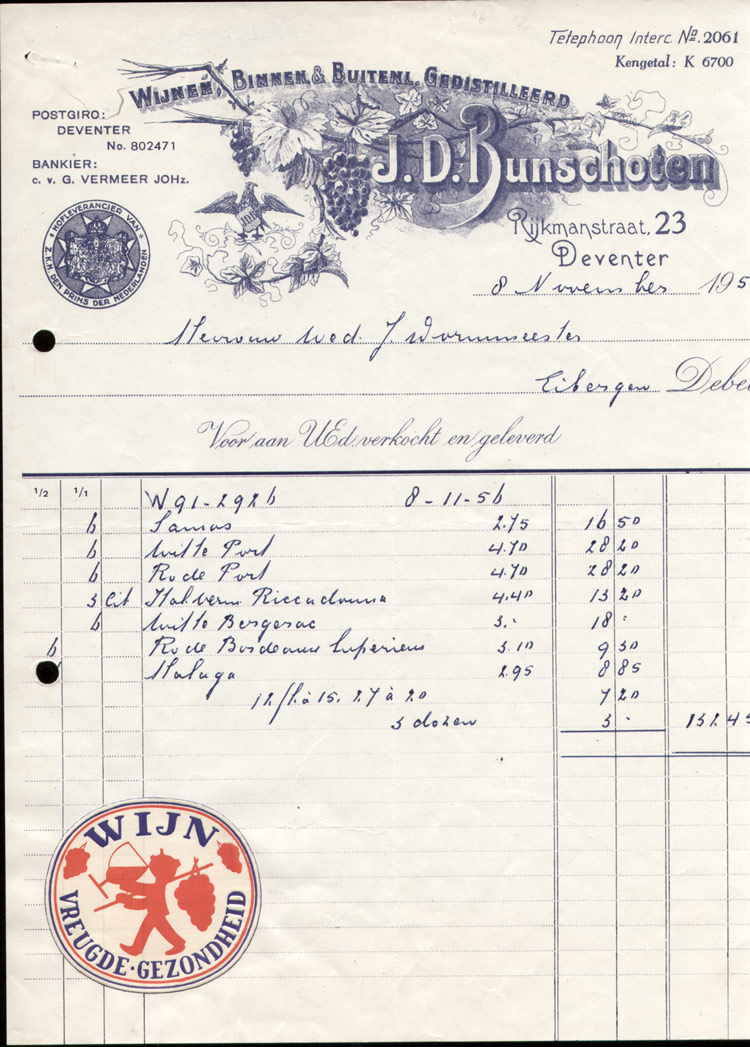 Telephoon Interc. No. 2061
Kengetal: K 6700
WIJNEN, BINNEN & BUITENL. GEDISTILLEERD
POSTGIRO:
DEVENTER
No. 802471
BANKIER:
C. V. G. VERMEER JOHz.
J. D. Bunschoten
J.D.B.
HOFLEVERANCIER VAN
Z.K.H. DEN PRINS DER NEDERLANDEN
Rijkmanstraat, 23
Deventer
8 November 195
Mevrouw Wed. J. Wormmeester
Eibergen Debe
Voor aan UEd. verkocht en geleverd
1/2 1/1 W91-292b 8-11-56
6 Samos 2.75 16 50
6 Witte Port 4.70 28 20
6 Rode Port 4.70 28 20
3 Lit Ital verm Riccadonna 4.40 13 20
6 Witte Bergerac 3.- 18 -
Rode Bordeaux Superieur 3.10 9 30
Malaga 2.95 8 85
7 20
3 dozen 3 - 132.45
WIJN
VREUGDE·GEZONDHEID